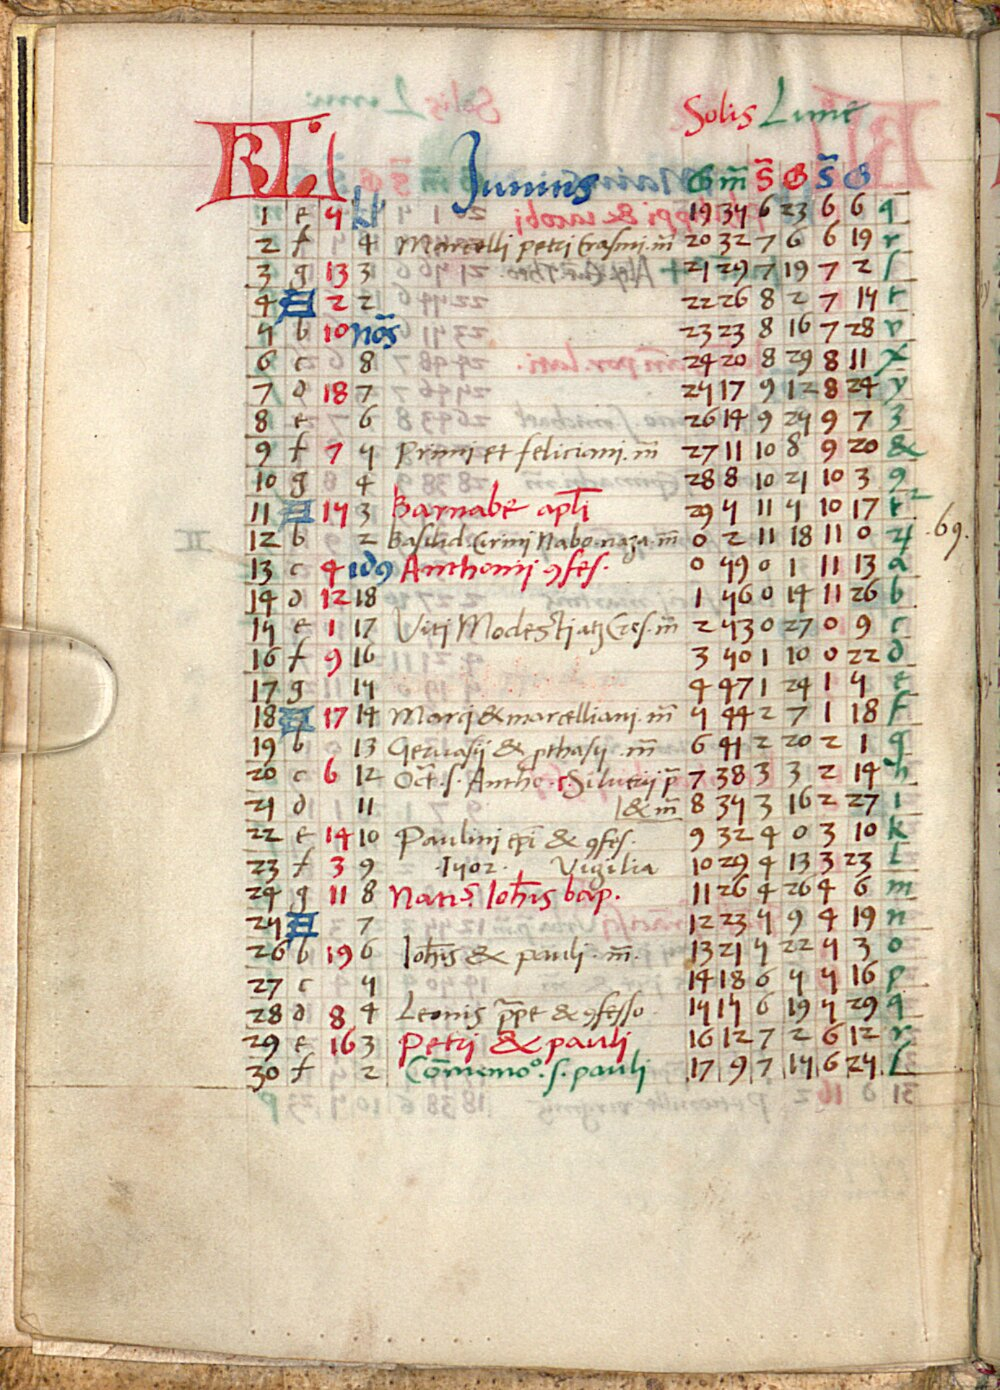 Solis Lune
KL Iunius G m̄ S̄ G S̄ G
1 e 5 kl 19 35 6 23 6 6 q
2 f 4 Marcelli petri Erasmi m̄ 20 32 7 6 6 19 r
3 g 13 3 21 29 7 19 7 2 ſ
4 A 2 2 22 26 8 2 7 15 t
5 b 10 nōs 23 23 8 16 7 28 v
6 c 8 24 20 8 29 8 11 x
7 d 18 7 25 17 9 12 8 24 y
8 e 6 26 14 9 25 9 7 z
9 f 7 5 Primi et feliciani. m̄ 27 11 10 8 9 20 &
10 g 4 28 8 10 21 10 3 9
11 A 15 3 Barnabe apłi 29 5 11 5 10 17
12 b 2 Basilid. Cirini Nabo. naza. m̄ 0 2 11 18 11 0 .69.
13 c 4 id9 Anthonij 9fes. 0 59 0 1 11 13 a
14 d 12 18 1 56 0 14 11 26 b
15 e 1 17 Viti Modesti atq Cres. m̄ 2 53 0 27 0 9 c
16 f 9 16 3 50 1 10 0 22 d
17 g 15 4 47 1 24 1 5 e
18 A 17 14 Marci & marcelliani. m̄ 5 44 2 7 1 18 f
19 b 13 Geruasij & pthasij. m̄ 6 41 2 20 2 1 g
20 c 6 12 Oct. s. Antho. Siluerij p̄ 7 38 3 3 2 14 h
21 d 11 & m̄ 8 35 3 16 2 27 i
22 e 14 10 Paulini ep̄i & 9fes. 9 32 4 0 3 10 k
23 f 3 9 1502. Vigilia 10 29 4 13 3 23 l
24 g 11 8 Natiu. Ioh̄is bap. 11 26 4 26 4 6 m
25 A 7 12 23 5 9 4 19 n
26 b 19 6 Ioh̄is & pauli. m̄. 13 21 5 22 5 3 o
27 c 5 14 18 6 5 5 16 p
28 d 8 4 Leonis p̄pe & 9fesso 15 15 6 19 5 29 q
29 e 16 3 Petri & pauli 16 12 7 2 6 12 r
30 f 2 Com̄emoº. s. pauli 17 9 7 15 6 25 ſ